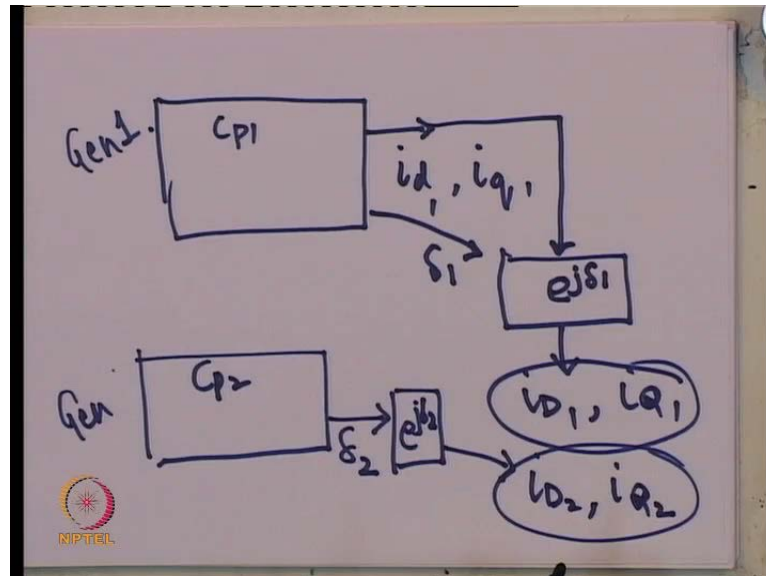 Gen1.
Cp1
id1, iq1
δ1
e^jδ1
iD1, iQ1
Gen
Cp2
δ2
e^jδ2
iD2, iQ2
NPTEL